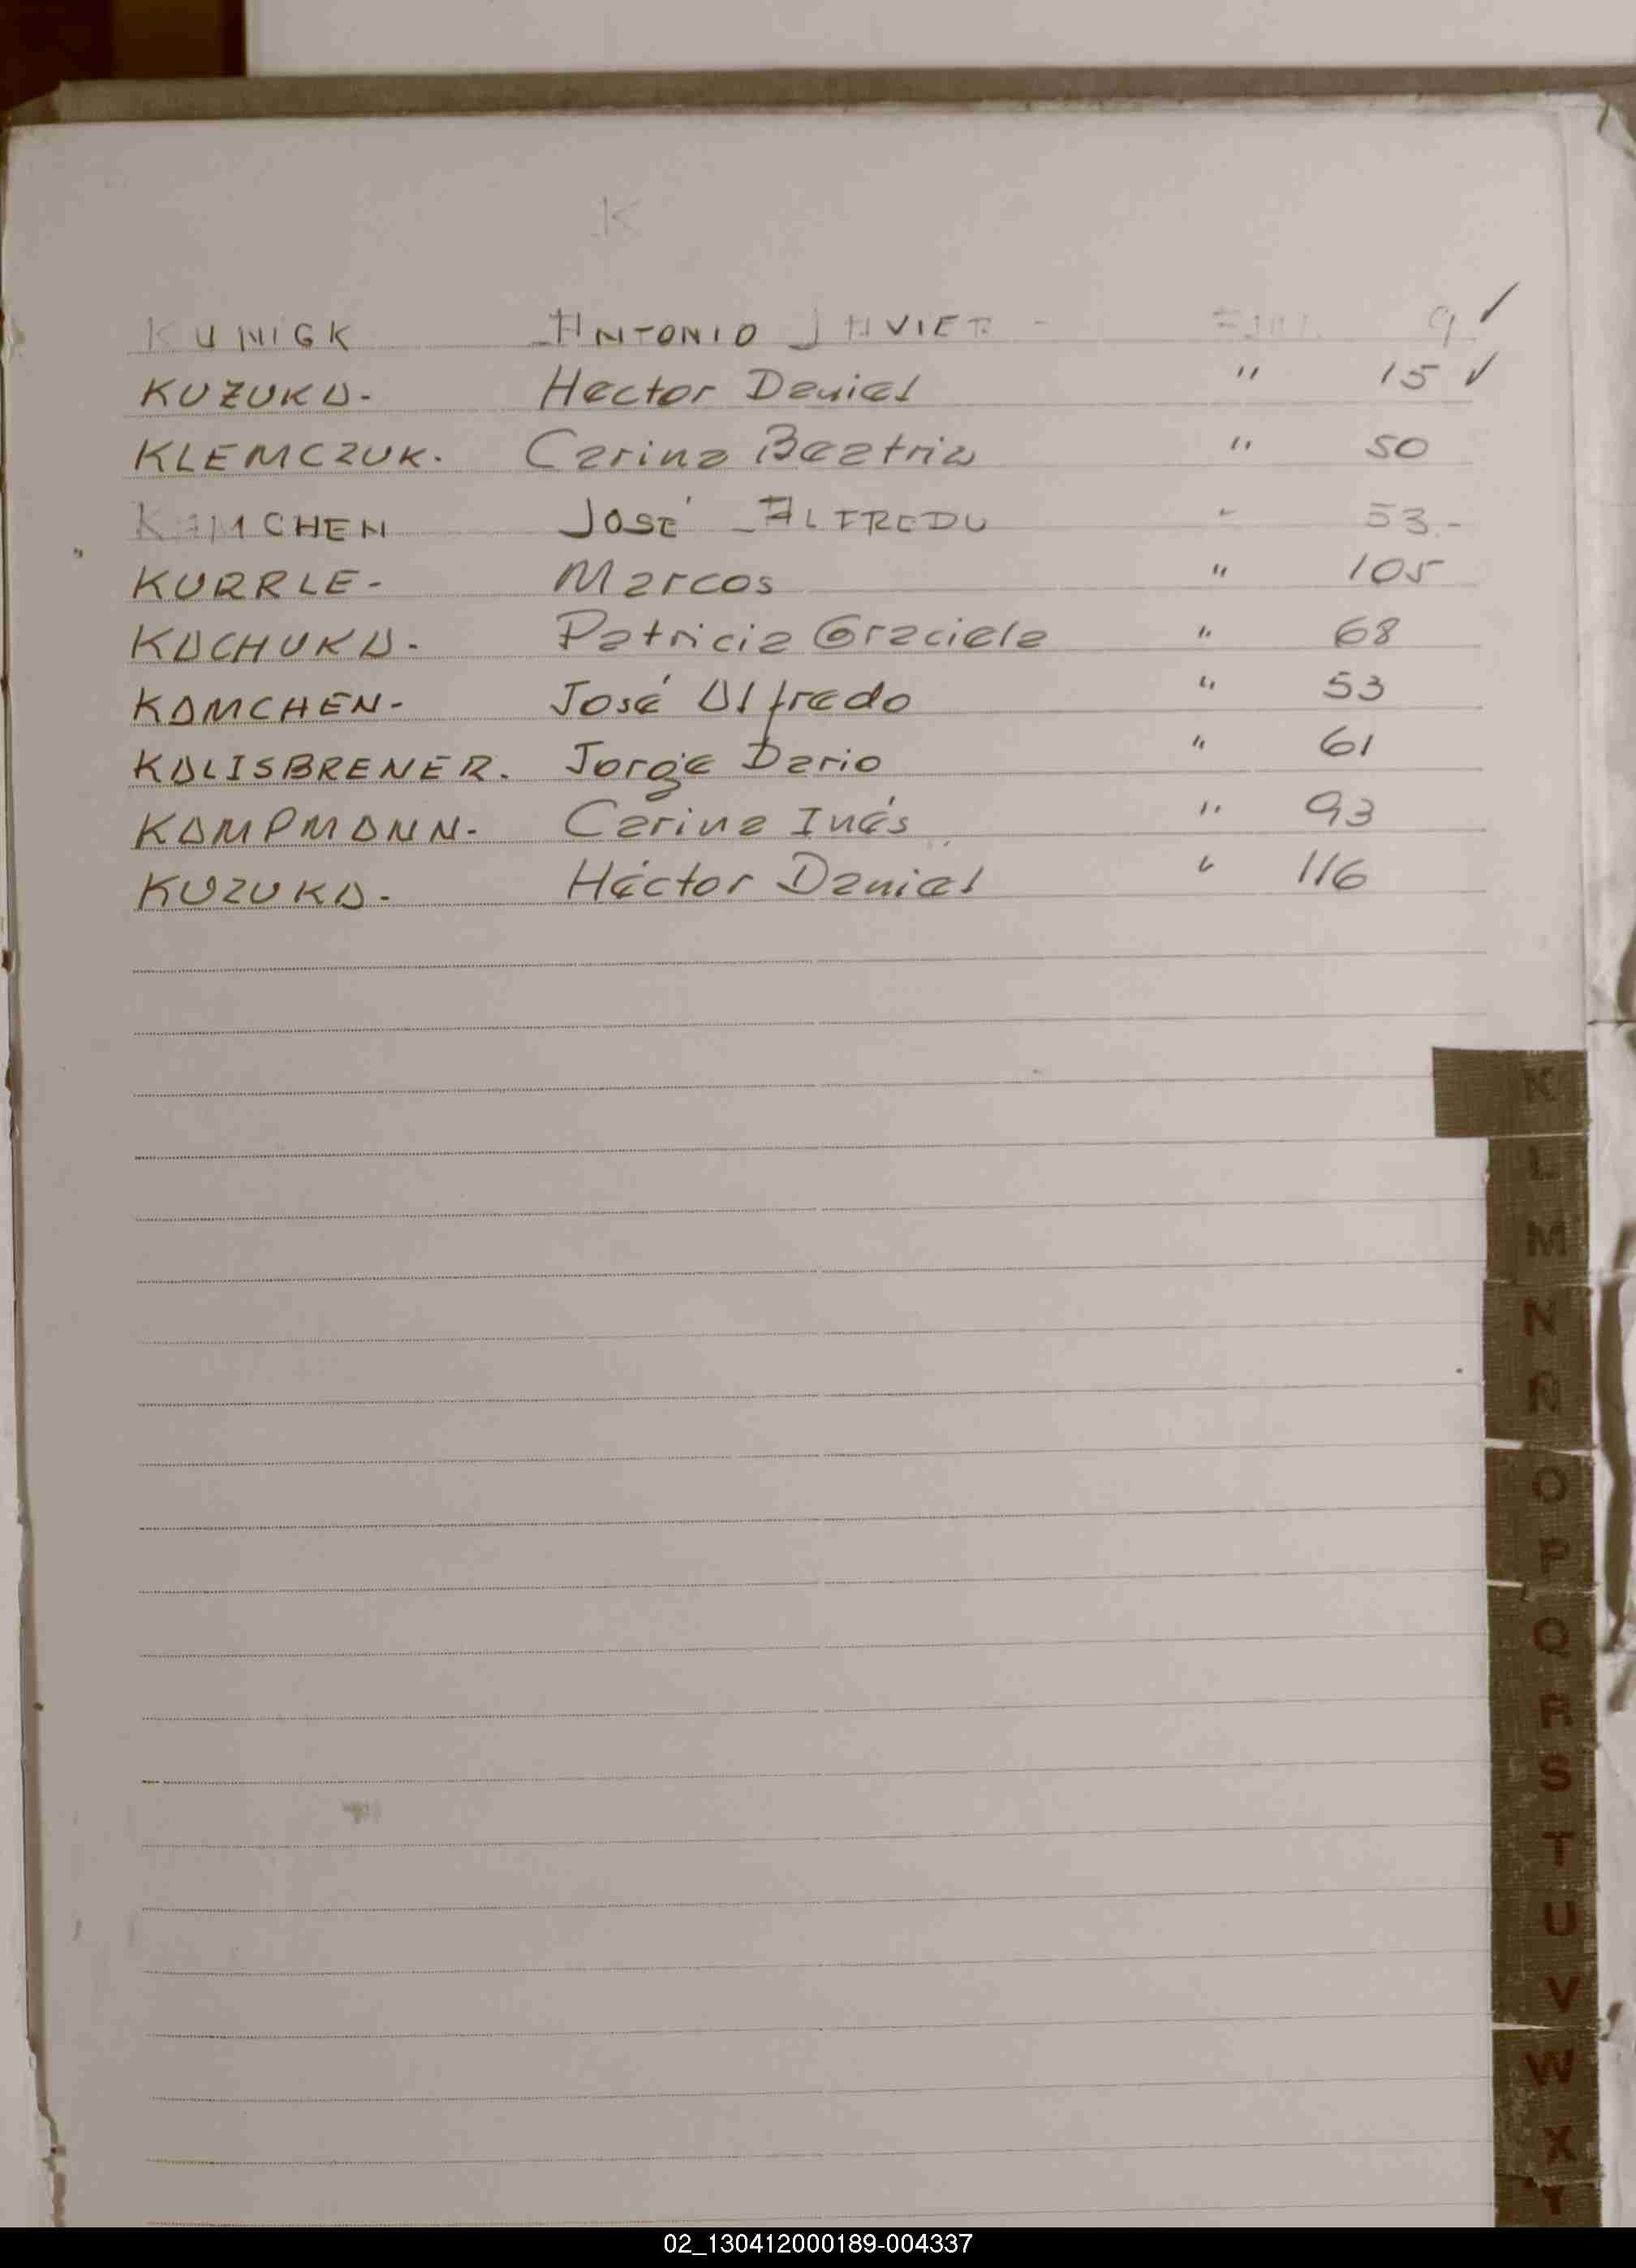 K
KUNIGK ANTONIO JAVIER - 9 ✓
KUZUKA. Hector Daniel " 15 ✓
KLEMCZUK. Carina Beatriz " 50
KAMCHEN JOSÉ ALFREDO " 53.-
KURRLE - Marcos " 105
KACHUKA. Patricia Graciela " 68
KAMCHEN - José Alfredo " 53
KALISBRENER. Jorge Dario " 61
KAMPMANN - Carina Inés " 93
KUZUKA. Héctor Daniel " 116
K
L
M
N
Ñ
O
P
Q
R
S
T
U
V
W
X
Y
02_130412000189-004337